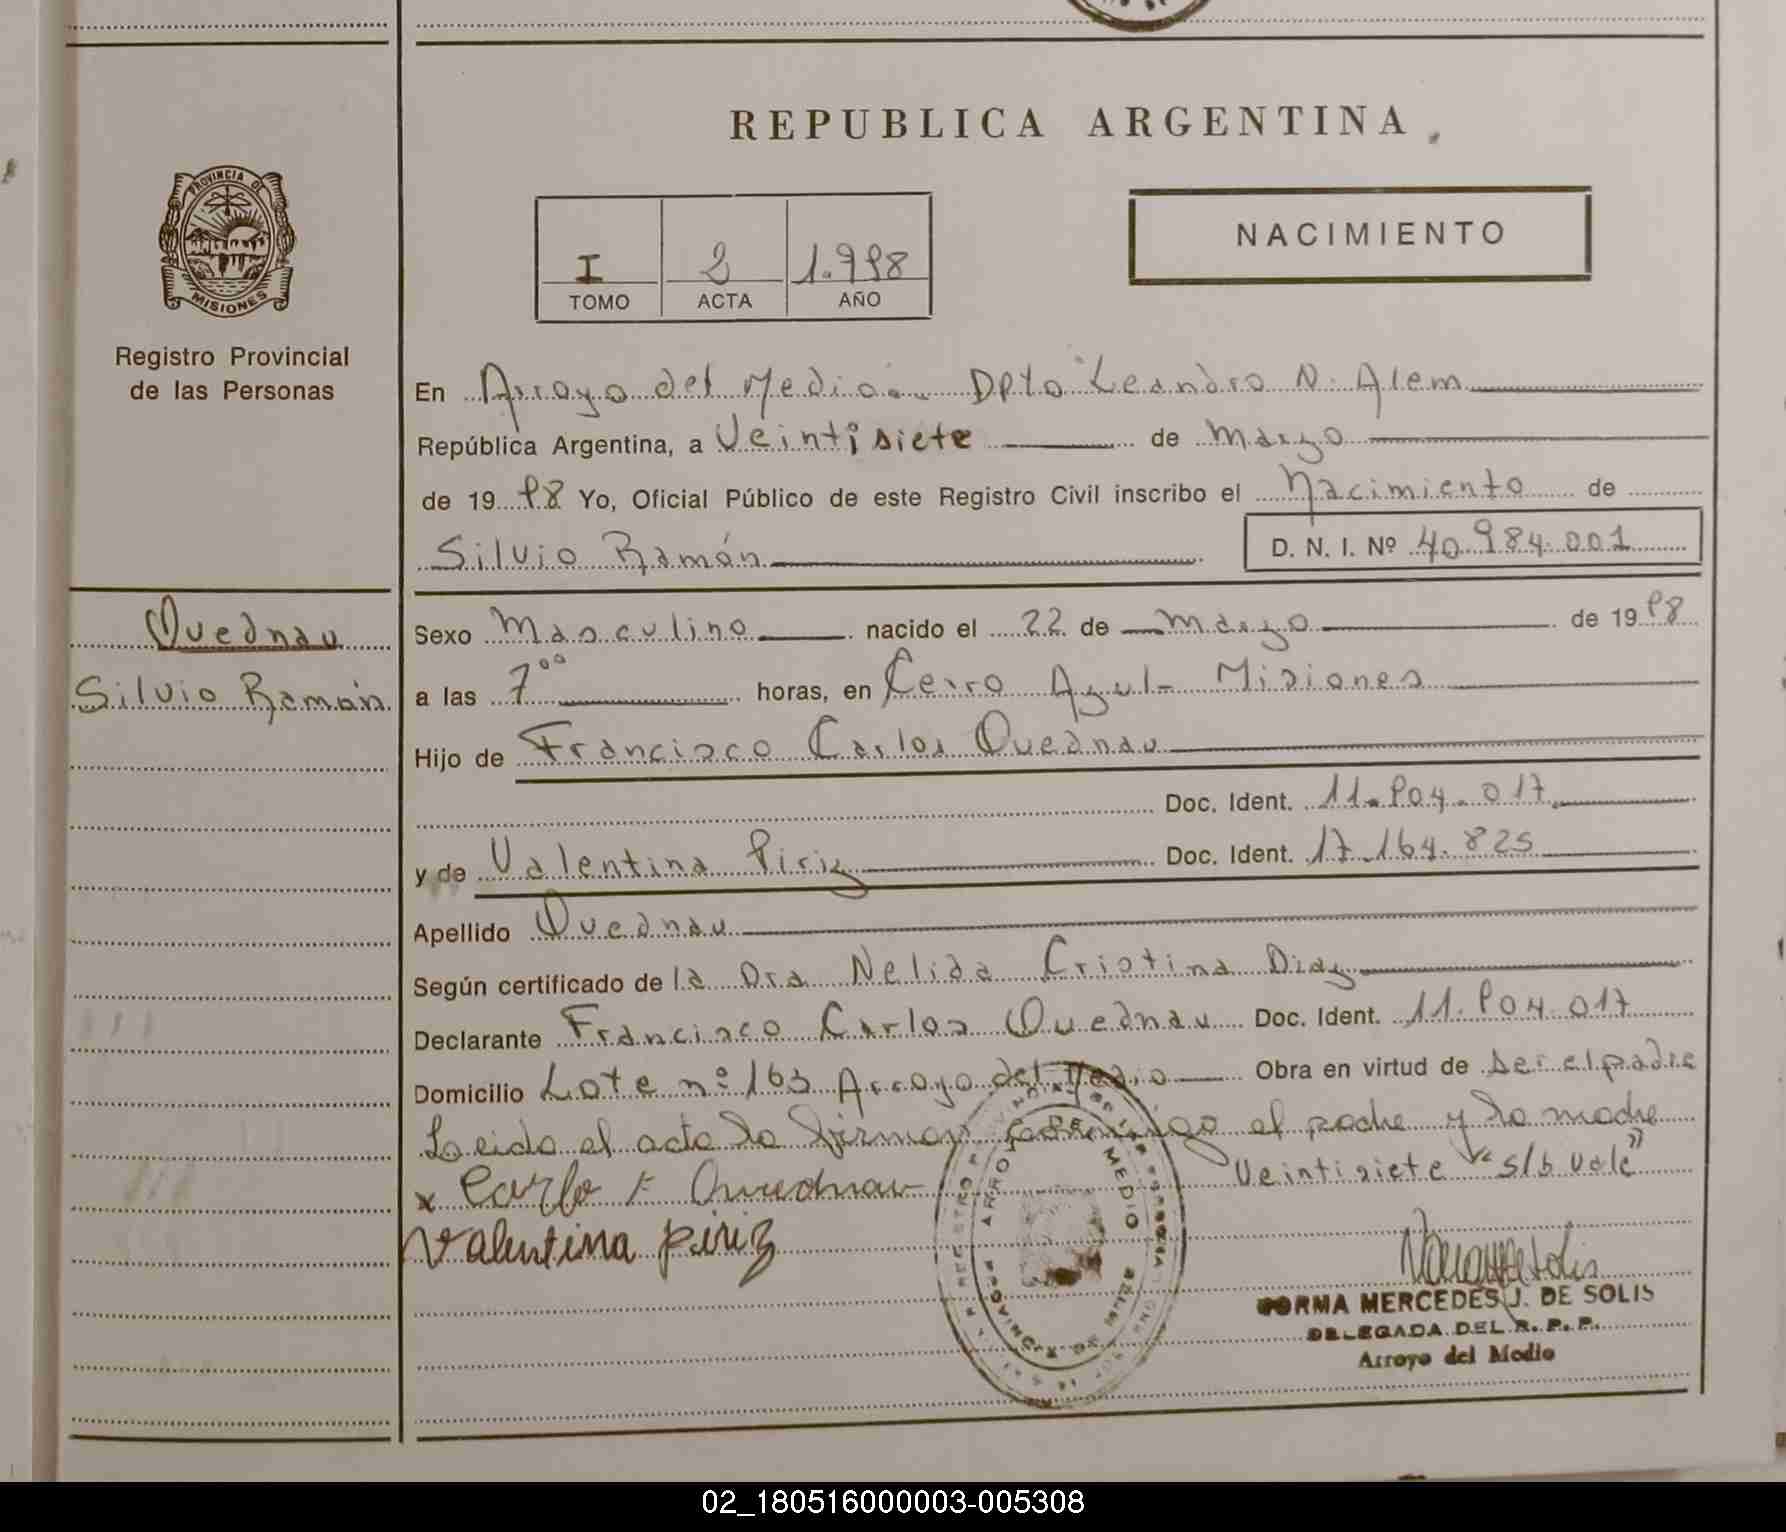 REPUBLICA ARGENTINA
PROVINCIA DE
MISIONES
Registro Provincial
de las Personas
I 2 1.998
TOMO ACTA AÑO
NACIMIENTO
En Arroyo del Medio Dpto Leandro N. Alem
República Argentina, a Veintisiete de Marzo
de 19 98 Yo, Oficial Público de este Registro Civil inscribo el Nacimiento de
Silvio Ramón D. N. I. Nº 40.984.001
Quednau
Silvio Ramón
Sexo Masculino nacido el 22 de Marzo de 19 98
a las 7⁰⁰ horas, en Cerro Azul- Misiones
Hijo de Francisco Carlos Quednau
Doc. Ident. 11.904.017
y de Valentina Piriz Doc. Ident. 17.164.825
Apellido Quednau
Según certificado de la Dra Nelida Cristina Diaz
Declarante Francisco Carlos Quednau Doc. Ident. 11.904.017
Domicilio Lote nº 163 Arroyo del Medio Obra en virtud de ser el padre
Leida el acta la firman conmigo el padre y la madre
Veintisiete "s/b vale"
x Carlo F Quednau
Valentina piriz
ARROYO MEDIO
NORMA MERCEDES J. DE SOLIS
DELEGADA DEL R. P. P.
Arroyo del Medio
02_180516000003-005308